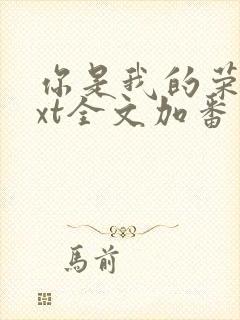 你是我的荣
xt全文加番
馬前